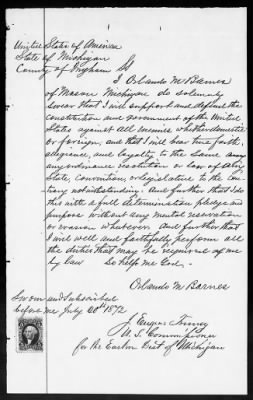 United States of America
State of Michigan
County of Ingham SS
I Orlando M Barnes
of Mason Michigan do solemnly
swear that I will support and defend the
constitution and government of the United
States against all enemies whether domestic
or foreign, and that I will bear true faith,
allegiance, and loyalty to the same any
ordinance resolution or law of any
State, convention, or legislature to the con-
trary notwithstanding. And further that I do
this with a full determination pledge and
purpose without any mental reservation
or evasion whatever. And further that
I will well and faithfully perform all
the duties that may be required of me
by law So help me God.
Orlando M Barnes
Sworn and subscribed
before me July 20th 1872
J Eugene Tenney
U. S. Commissioner
for the Eastern Dist of Michigan